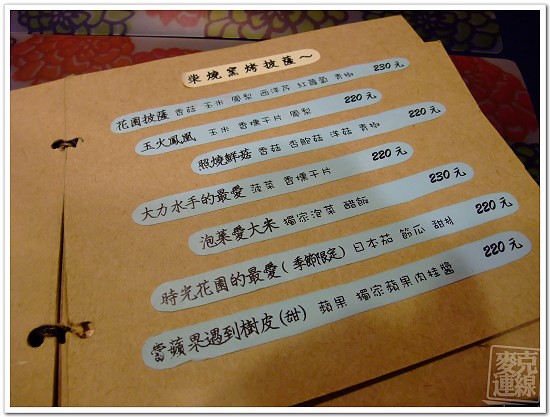 柴燒窯烤披薩～
花園披薩 香菇 玉米 鳳梨 西洋芹 紅蘿蔔 青椒 230元
五火鳳凰 玉米 香檳干片 鳳梨 220元
照燒鮮菇 香菇 杏鮑菇 洋菇 青椒 220元
大力水手的最愛 菠菜 香檳干片 220元
泡菜愛大米 獨家泡菜 醋飯 230元
時光花園的最愛(季節限定) 日本茄 節瓜 甜椒 220元
當蘋果遇到樹皮(甜) 蘋果 獨家蘋果肉桂醬 220元
麥克連線